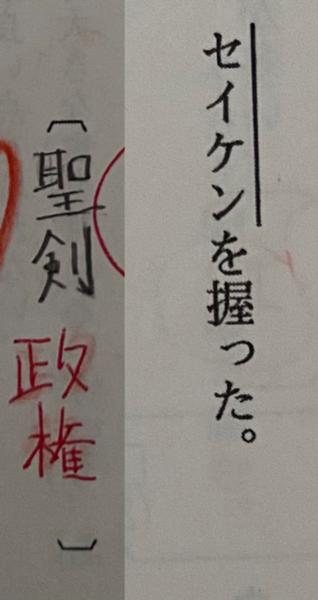 セイケンを握った。
〔聖剣 政権〕